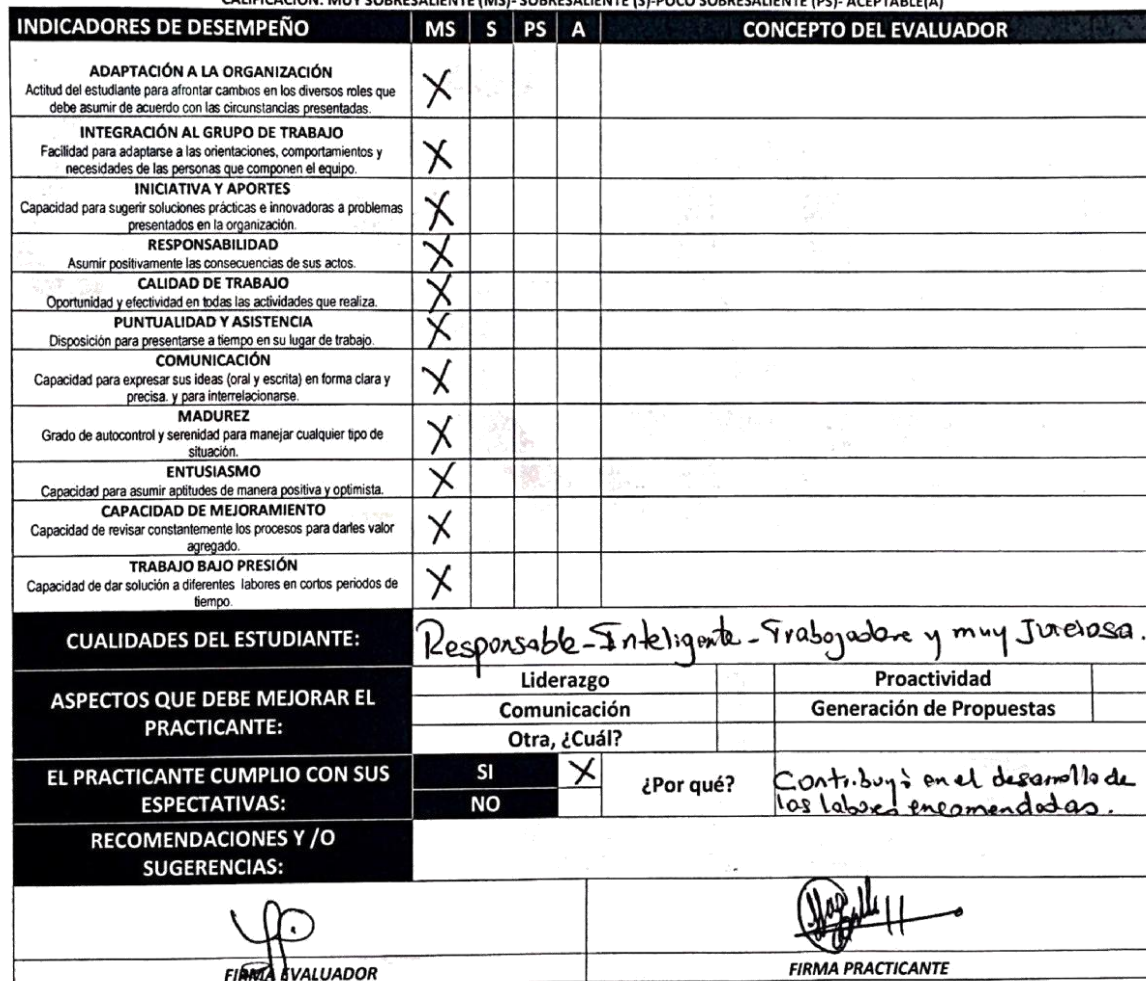 CALIFICACIÓN: MUY SOBRESALIENTE (MS)- SOBRESALIENTE (S)-POCO SOBRESALIENTE (PS)- ACEPTABLE(A)
INDICADORES DE DESEMPEÑO MS S PS A CONCEPTO DEL EVALUADOR
ADAPTACIÓN A LA ORGANIZACIÓN
Actitud del estudiante para afrontar cambios en los diversos roles que
debe asumir de acuerdo con las circunstancias presentadas.
X
INTEGRACIÓN AL GRUPO DE TRABAJO
Facilidad para adaptarse a las orientaciones, comportamientos y
necesidades de las personas que componen el equipo.
X
INICIATIVA Y APORTES
Capacidad para sugerir soluciones prácticas e innovadoras a problemas
presentados en la organización.
X
RESPONSABILIDAD
Asumir positivamente las consecuencias de sus actos.
X
CALIDAD DE TRABAJO
Oportunidad y efectividad en todas las actividades que realiza.
X
PUNTUALIDAD Y ASISTENCIA
Disposición para presentarse a tiempo en su lugar de trabajo.
X
COMUNICACIÓN
Capacidad para expresar sus ideas (oral y escrita) en forma clara y
precisa. y para interrelacionarse.
X
MADUREZ
Grado de autocontrol y serenidad para manejar cualquier tipo de
situación.
X
ENTUSIASMO
Capacidad para asumir aptitudes de manera positiva y optimista.
X
CAPACIDAD DE MEJORAMIENTO
Capacidad de revisar constantemente los procesos para darles valor
agregado.
X
TRABAJO BAJO PRESIÓN
Capacidad de dar solución a diferentes labores en cortos periodos de
tiempo.
X
CUALIDADES DEL ESTUDIANTE: Responsable-Inteligente-Trabajadora y muy
ASPECTOS QUE DEBE MEJORAR EL
PRACTICANTE:
Liderazgo Proactividad
Comunicación Generación de Propuestas
Otra, ¿Cuál?
EL PRACTICANTE CUMPLIO CON SUS
ESPECTATIVAS:
SI X
NO
¿Por qué?
Contribuyó en el desarrollo de
las labores encomendadas.
RECOMENDACIONES Y /O
SUGERENCIAS:
FIRMA EVALUADOR FIRMA PRACTICANTE